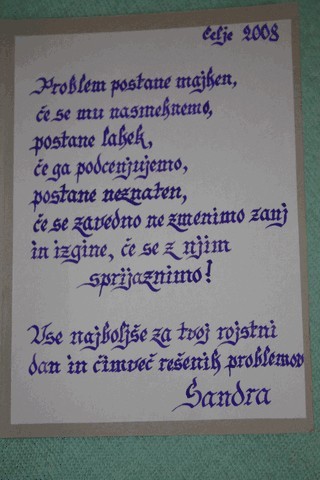 Celje 2008
Problem postane majhen,
če se mu nasmehnemo,
postane lahek,
če ga podcenjujemo,
postane neznaten,
če se zavedno ne zmenimo zanj
in izgine, če se z njim
sprijaznimo!
Vse najboljše za tvoj rojstni
dan in čimveč rešenih problemov
Sandra